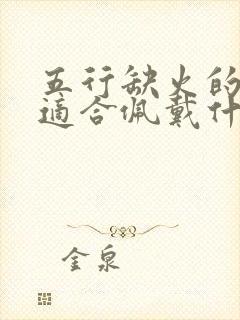 五行缺火的
适合佩戴什
金泉